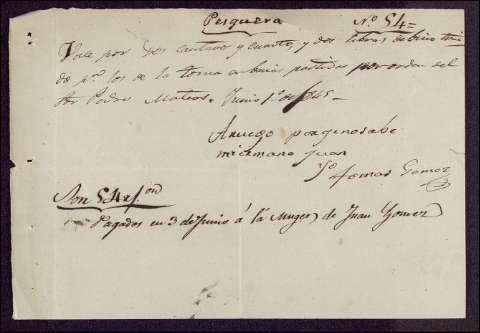 Pesquera
Nº 54=
Vale por dos cantaros y cuarto, y dos libras de bino
do pª los de la toma a barias partidas por orden del
Sr Pedro Mateos. Junio 1º de 1845-
Aruego porqe no sabe
mi ermano Juan
Tomas Gomez
Son 54 rs von
Pagados en 3 de Junio á la Muger de Juan Gomez